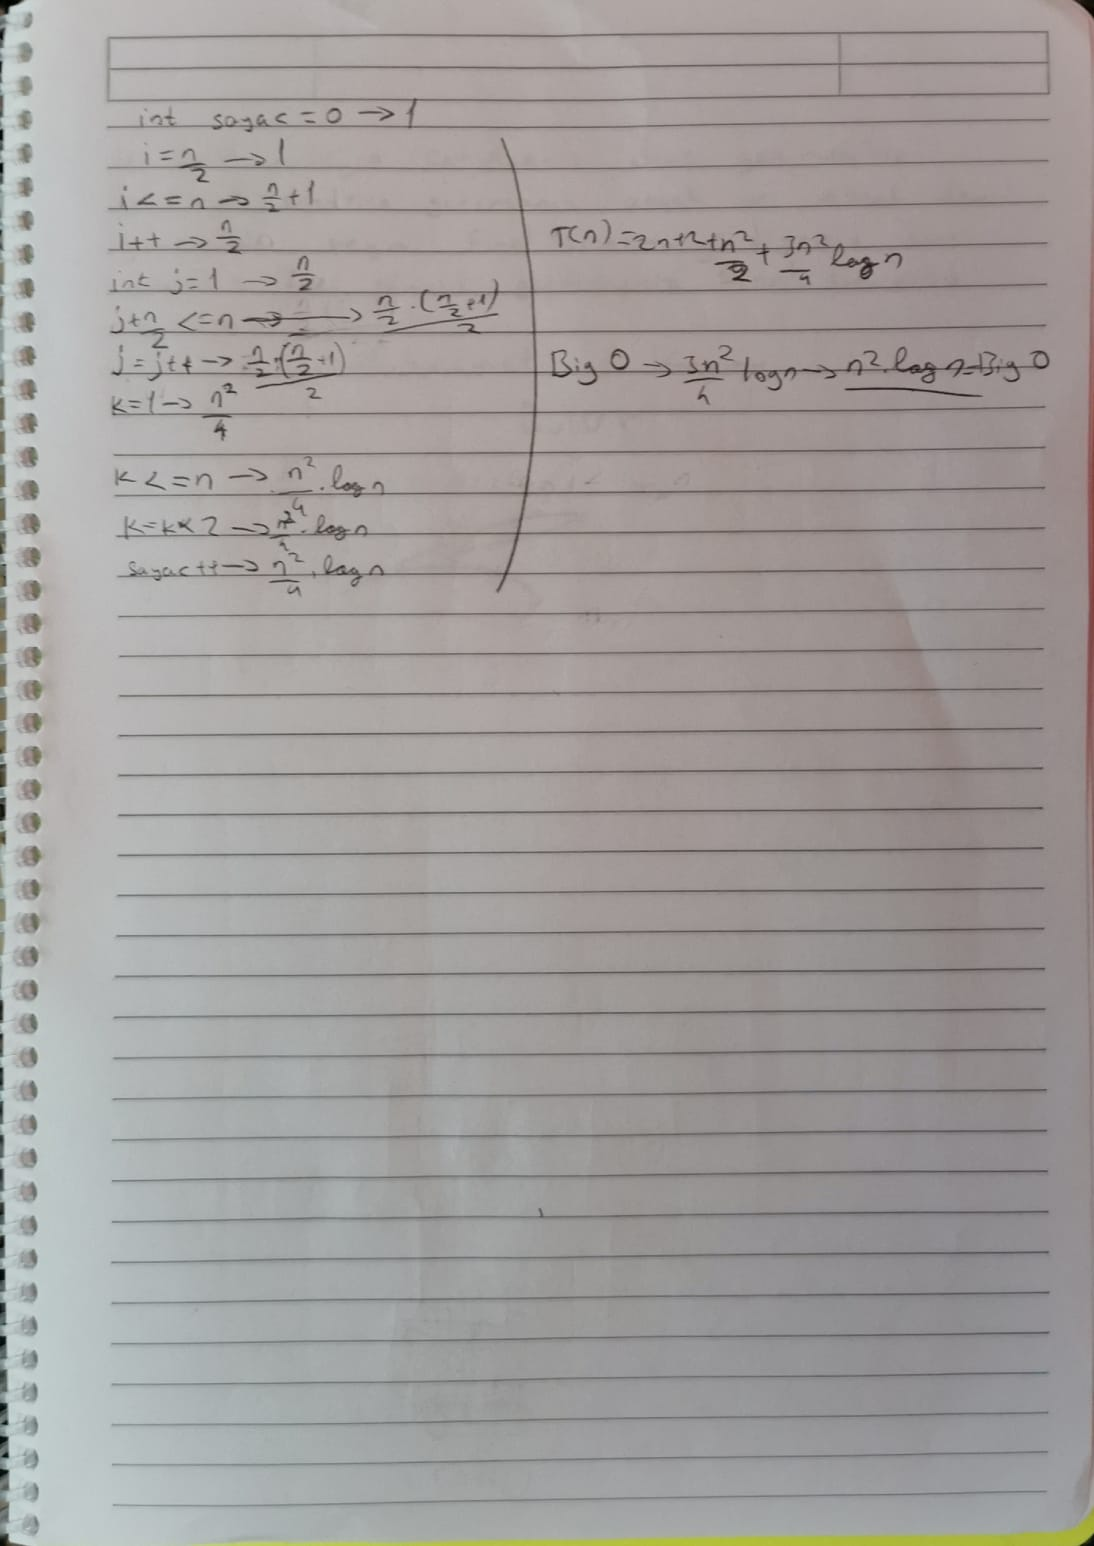 int sayac = 0 → 1
i = n/2 → 1
i <= n → n/2 + 1
i++ → n/2
int j = 1 → n/2
j + n/2 <= n → n/2 · (n/2 + 1) / 2
j = j++ → n/2 · (n/2 + 1) / 2
k = 1 → n²/4
k <= n → n²/4 · log n
k = k * 2 → n²/4 · log n
sayac++ → n²/4 · log n
T(n) = 2n + 2 + n²/2 + 3n²/4 log n
Big O → 3n²/4 log n → n² · log n = Big O